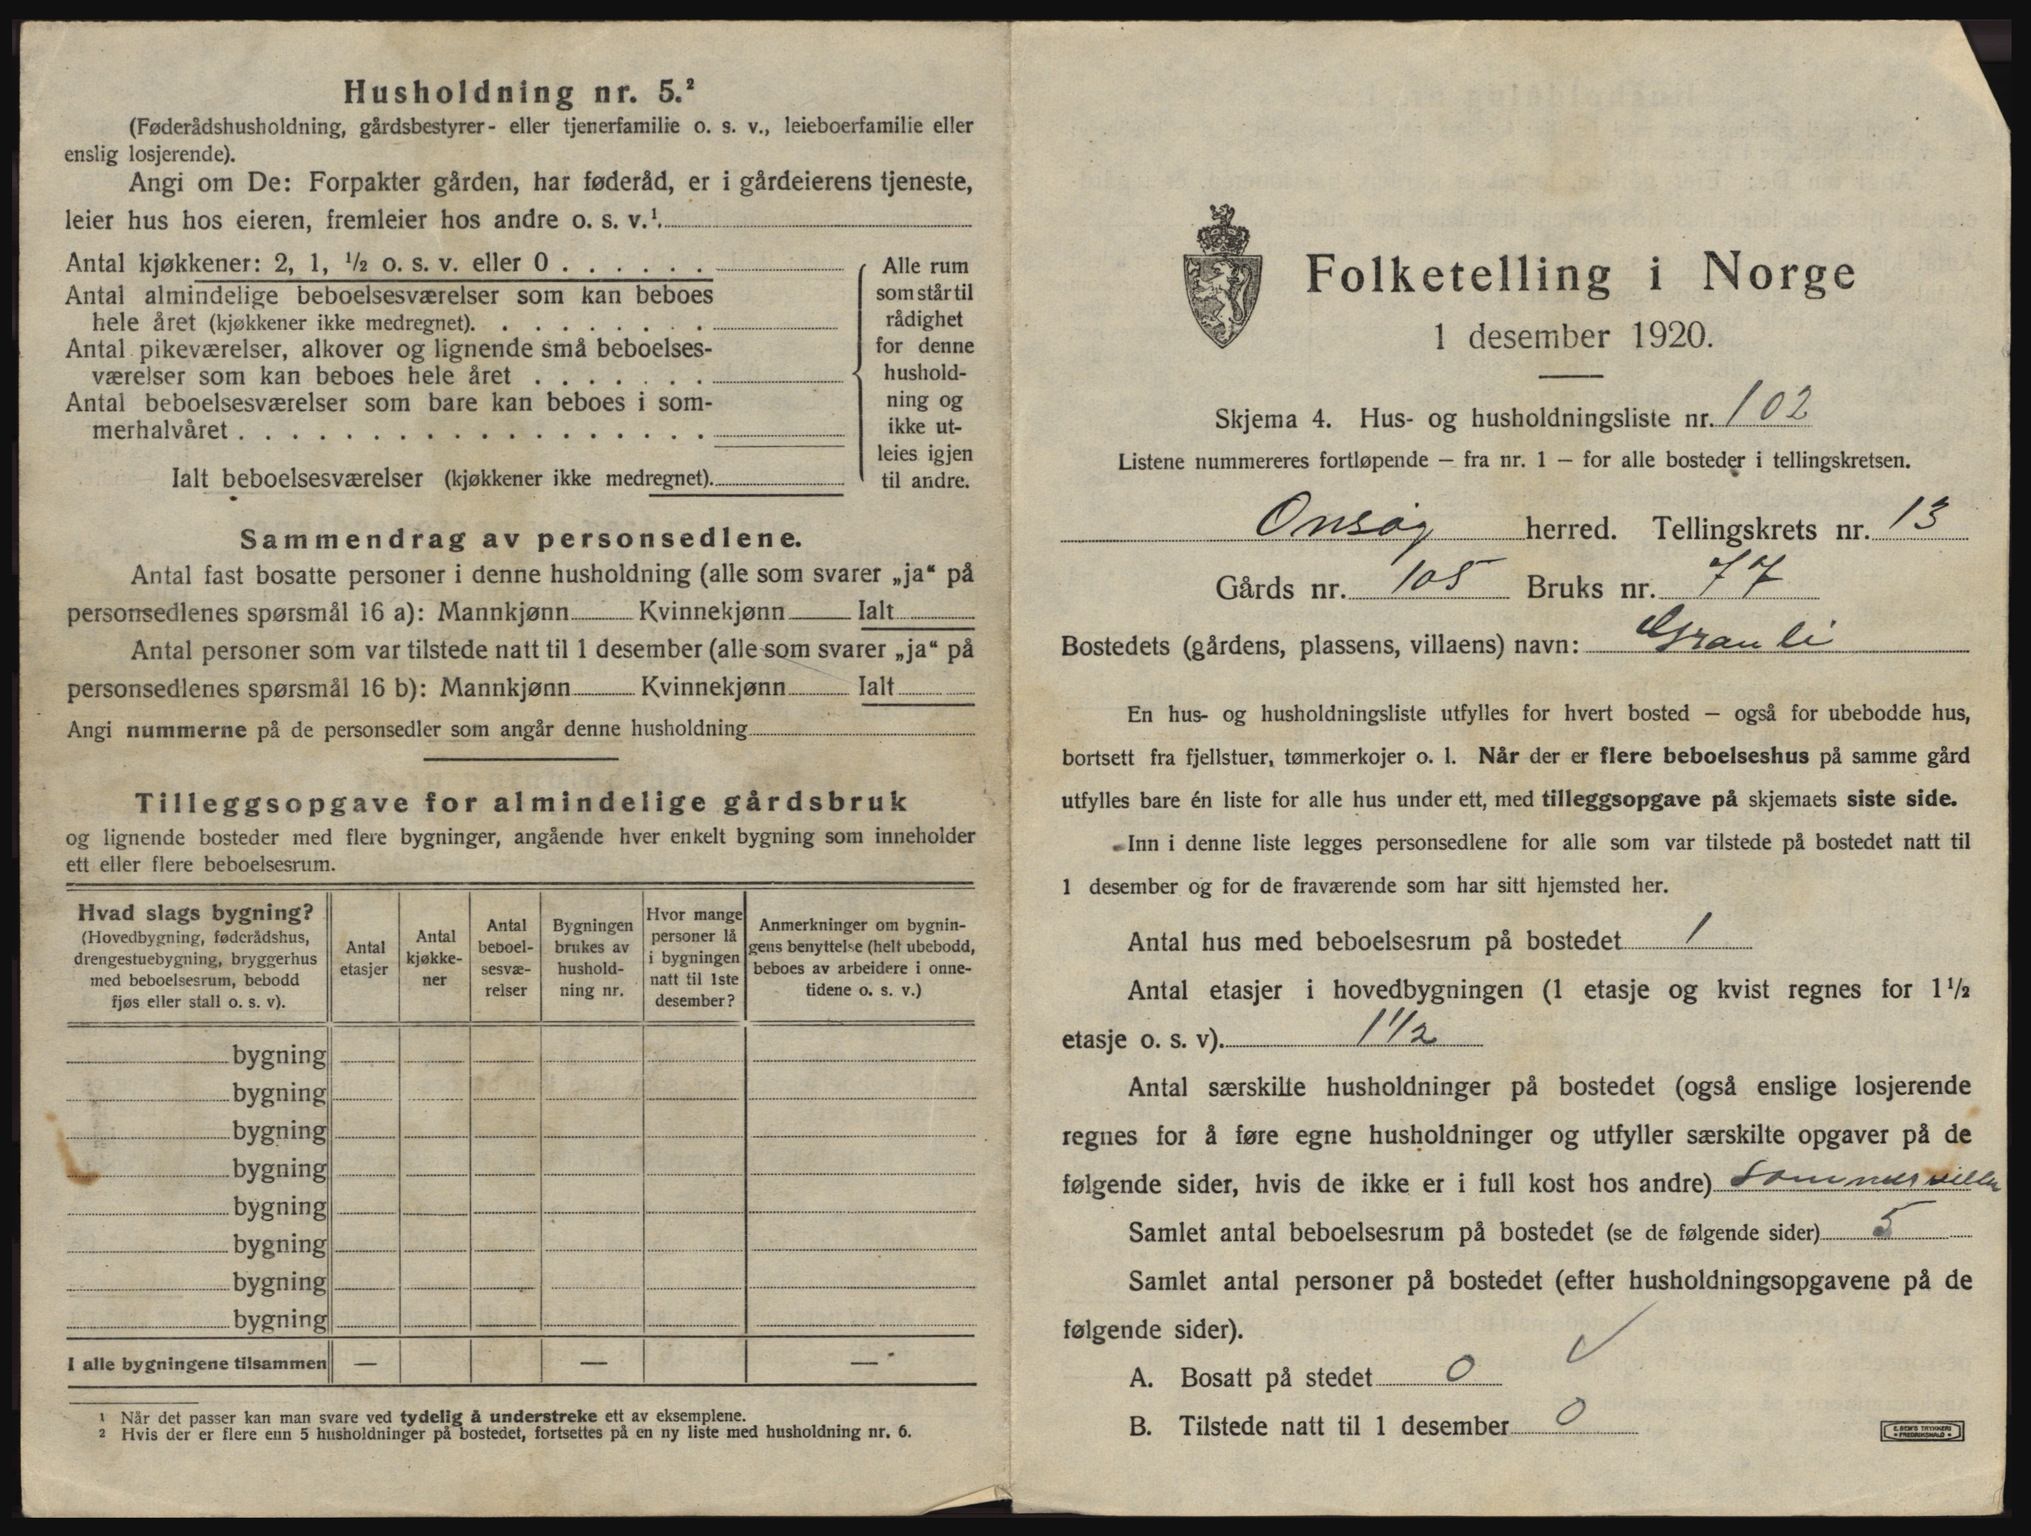 Husholdning nr. 5.²
(Føderådshusholdning, gårdsbestyrer- eller tjenerfamilie o. s. v., leieboerfamilie eller
enslig losjerende).
Angi om De: Forpakter gården, har føderåd, er i gårdeierens tjeneste,
leier hus hos eieren, fremleier hos andre o. s. v.¹.
Antal kjøkkener: 2, 1, ½ o. s. v. eller 0 . . . . . .
Antal almindelige beboelsesværelser som kan beboes
hele året (kjøkkener ikke medregnet). . . . . . . . .
Antal pikeværelser, alkover og lignende små beboelses-
værelser som kan beboes hele året . . . . . . .
Antal beboelsesværelser som bare kan beboes i som-
merhalvåret . . . . . . . . . . . . . . . . . .
Ialt beboelsesværelser (kjøkkener ikke medregnet).
Alle rum
som står til
rådighet
for denne
hushold-
ning og
ikke ut-
leies igjen
til andre.
Sammendrag av personsedlene.
Antal fast bosatte personer i denne husholdning (alle som svarer „ja“ på
personsedlenes spørsmål 16 a): Mannkjønn Kvinnekjønn Ialt
Antal personer som var tilstede natt til 1 desember (alle som svarer „ja“ på
personsedlenes spørsmål 16 b): Mannkjønn Kvinnekjønn Ialt
Angi nummerne på de personsedler som angår denne husholdning
Tilleggsopgave for almindelige gårdsbruk
og lignende bosteder med flere bygninger, angående hver enkelt bygning som inneholder
ett eller flere beboelsesrum.
Hvad slags bygning?
(Hovedbygning, føderådshus,
drengestuebygning, bryggerhus
med beboelsesrum, bebodd
fjøs eller stall o. s. v).
Antal
etasjer
Antal
kjøkke-
ner
Antal
beboel-
sesvæ-
relser
Bygningen
brukes av
hushold-
ning nr.
Hvor mange
personer lå
i bygningen
natt til 1ste
desember?
Anmerkninger om bygnin-
gens benyttelse (helt ubebodd,
beboes av arbeidere i onne-
tidene o. s. v.)
bygning
bygning
bygning
bygning
bygning
bygning
bygning
bygning
I alle bygningene tilsammen — — —
¹ Når det passer kan man svare ved tydelig å understreke ett av eksemplene.
² Hvis der er flere enn 5 husholdninger på bostedet, fortsettes på en ny liste med husholdning nr. 6.
Folketelling i Norge
1 desember 1920.
Skjema 4. Hus- og husholdningsliste nr. 102
Listene nummereres fortløpende — fra nr. 1 — for alle bosteder i tellingskretsen.
Onsøy herred. Tellingskrets nr. 13
Gårds nr. 105 Bruks nr. 77
Bostedets (gårdens, plassens, villaens) navn: Granli
En hus- og husholdningsliste utfylles for hvert bosted — også for ubebodde hus,
bortsett fra fjellstuer, tømmerkojer o. l. Når der er flere beboelseshus på samme gård
utfylles bare én liste for alle hus under ett, med tilleggsopgave på skjemaets siste side.
Inn i denne liste legges personsedlene for alle som var tilstede på bostedet natt til
1 desember og for de fraværende som har sitt hjemsted her.
Antal hus med beboelsesrum på bostedet 1
Antal etasjer i hovedbygningen (1 etasje og kvist regnes for 1½
etasje o. s. v). 1½
Antal særskilte husholdninger på bostedet (også enslige losjerende
regnes for å føre egne husholdninger og utfyller særskilte opgaver på de
følgende sider, hvis de ikke er i full kost hos andre) Sommervilla
Samlet antal beboelsesrum på bostedet (se de følgende sider) 5
Samlet antal personer på bostedet (efter husholdningsopgavene på de
følgende sider).
A. Bosatt på stedet 0
B. Tilstede natt til 1 desember 0
E. SEM'S TRYKKERI
FREDRIKSHALD